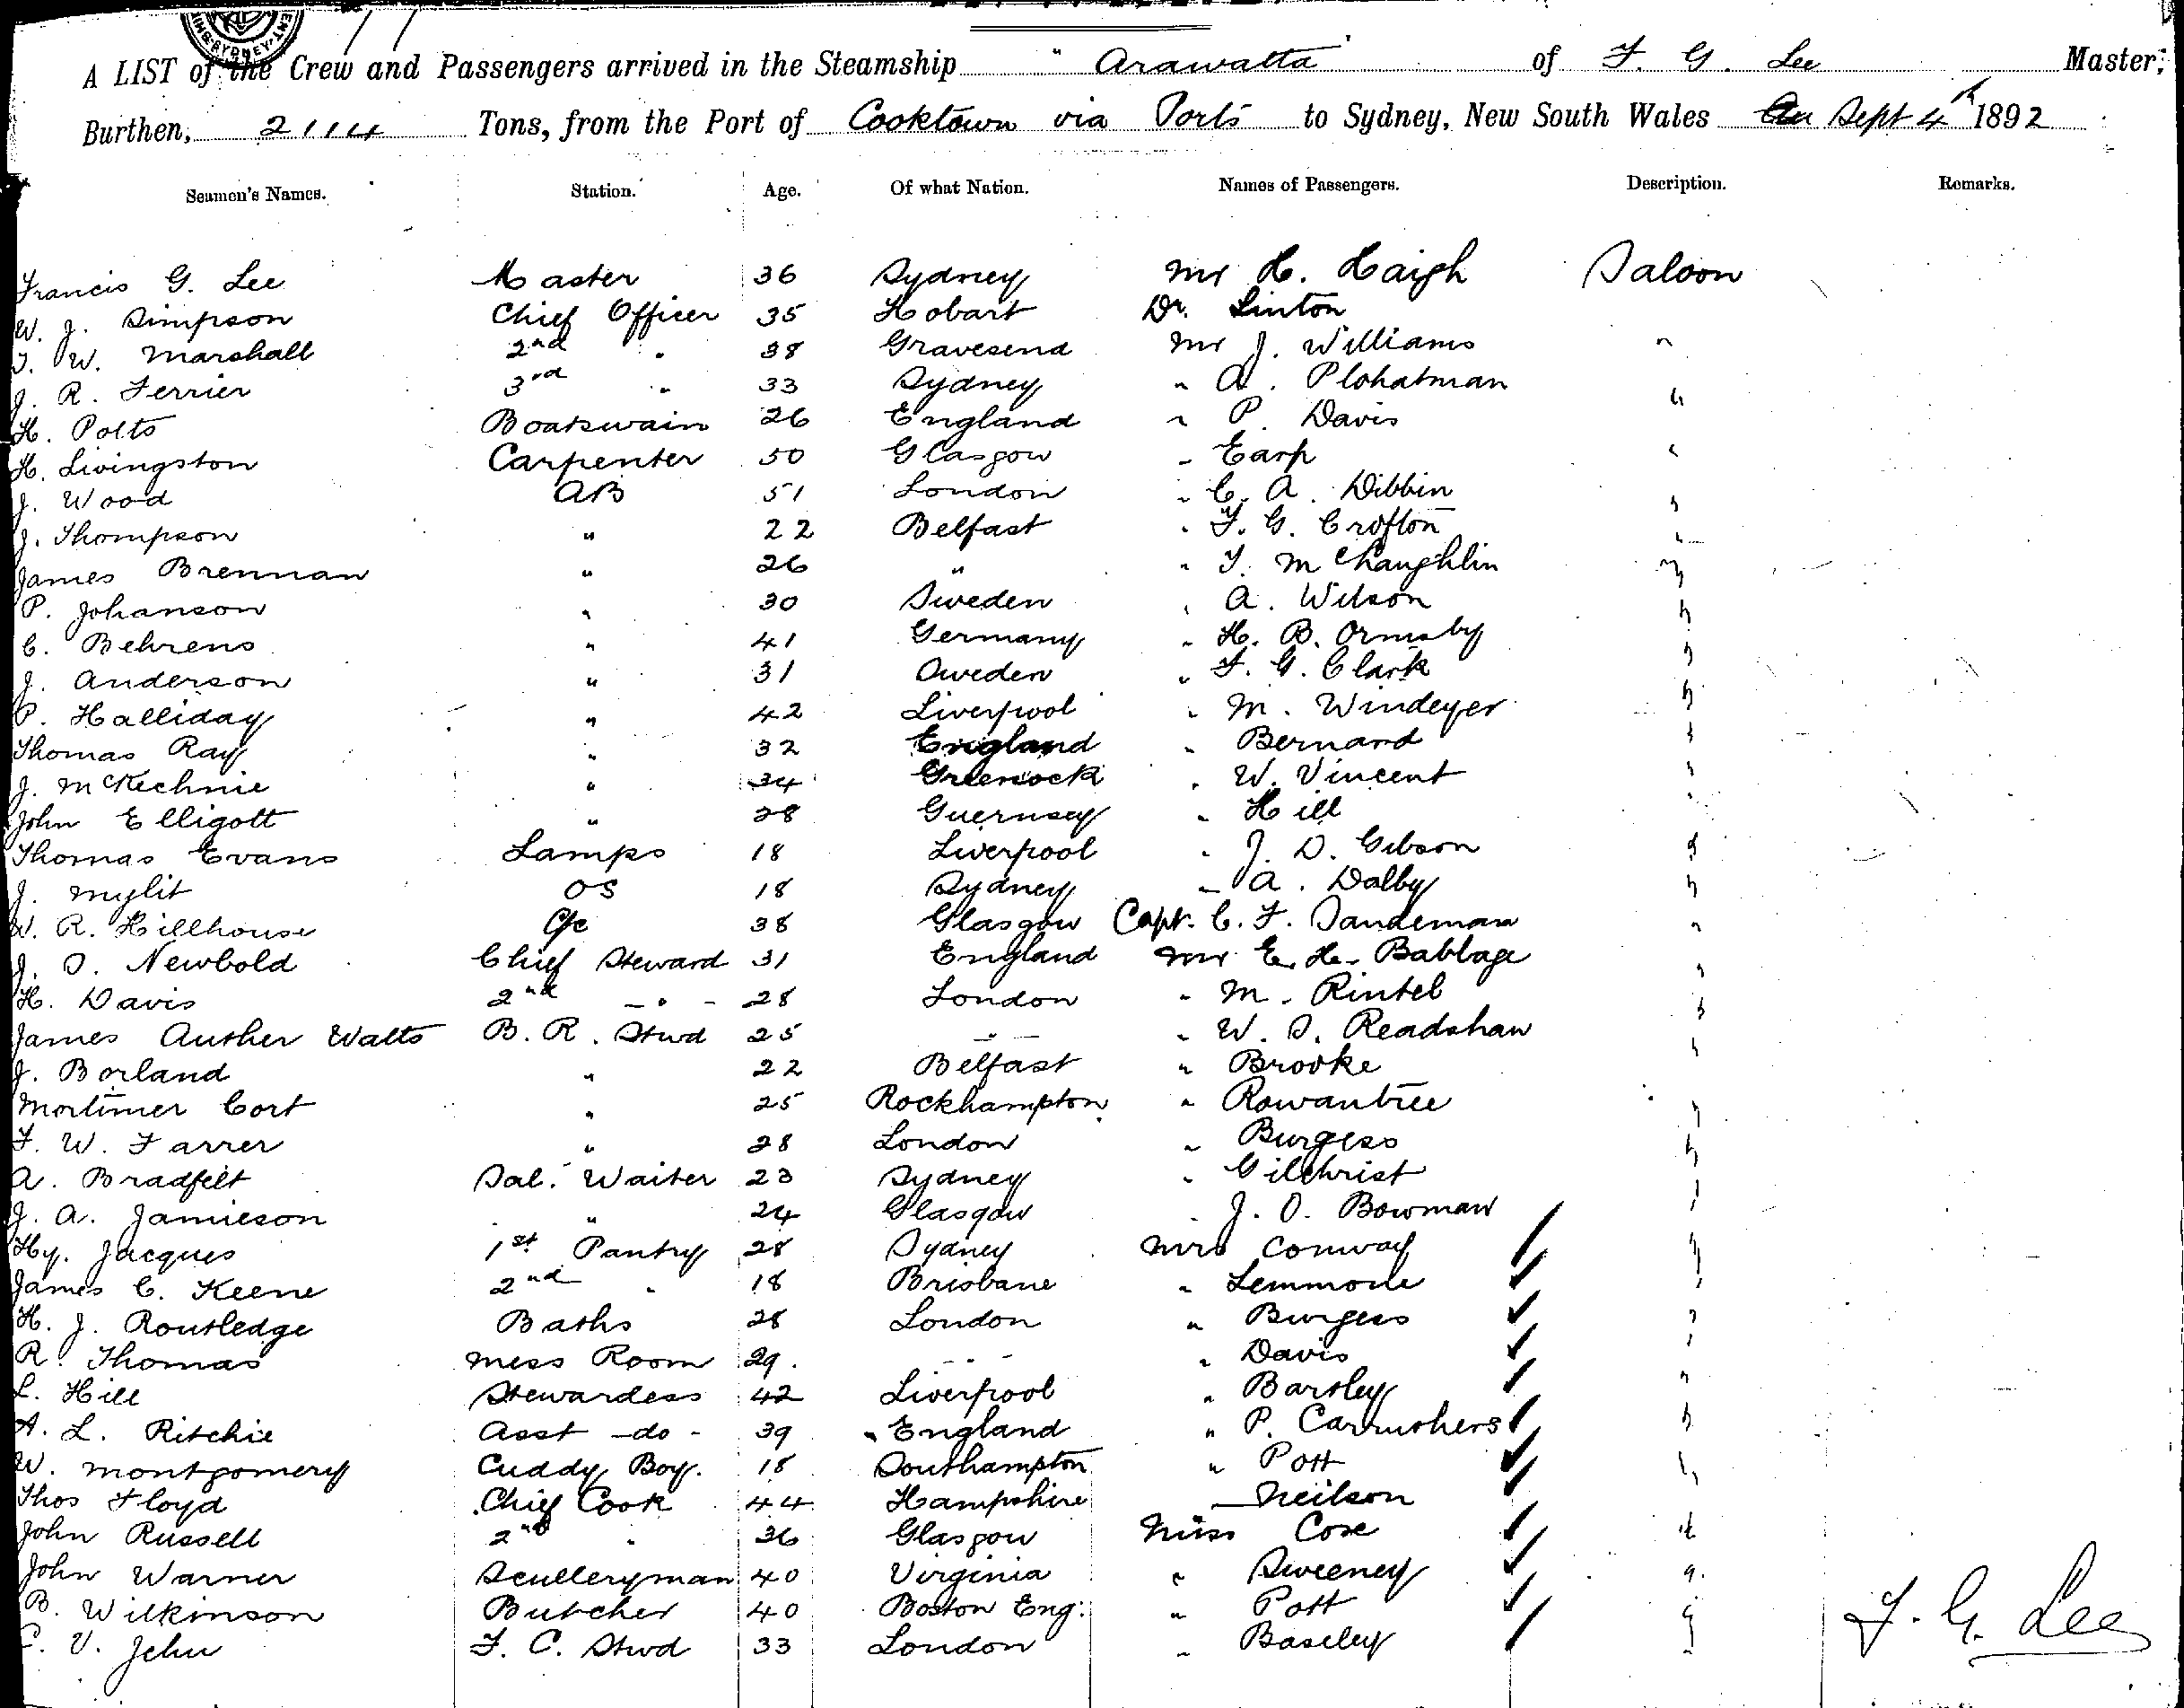 A LIST of the Crew and Passengers arrived in the Steamship "Arawatta" of F. G. Lee Master,
Burthen, 2114 Tons, from the Port of Cooktown via Ports to Sydney, New South Wales Sept 4th 1892
Seamen's Names. Station. Age. Of what Nation. Names of Passengers. Description. Remarks.
Francis G. Lee Master 36 Sydney Mr H. Haigh Saloon
W. J. Simpson Chief Officer 35 Hobart Dr. Linton
T. W. Marshall 2nd " 38 Gravesend Mr J. Williams "
J. R. Ferrier 3rd " 33 Sydney " A. Plohatman "
H. Potts Boatswain 26 England " P. Davis
H. Livingston Carpenter 50 Glasgow " Earp "
J. Wood AB 51 London " C. A. Dibbin "
J. Thompson " 22 Belfast " F. G. Crofton "
James Brennan " 26 " " T. McLaughlin "
P. Johanson " 30 Sweden " A. Wilson "
C. Behrens " 41 Germany " H. B. Ormsby "
J. Anderson " 31 Sweden " F. G. Clark "
P. Halliday " 42 Liverpool " M. Windeyer "
Thomas Ray " 32 England " Bernard "
J. McKechnie " 34 Greenock " W. Vincent "
John Elligott " 28 Guernsey " Hill "
Thomas Evans Lamps 18 Liverpool " J. D. Gibson "
J. Mylit OS 18 Sydney " A. Dalby "
W. R. Hillhouse 38 Glasgow Capt. C. F. Sandeman "
J. S. Newbold Chief Steward 31 England Mr E. H. Babbage "
H. Davis 2nd - " - 28 London " M. Rintel "
James Auther Watts B. R. Stwd 25 " " W. S. Readshaw "
J. Borland " 22 Belfast " Brooke
Mortimer Cort " 25 Rockhampton " Rowantree "
F. W. Farrer " 28 London " Burgess "
A. Bradfelt Sal. Waiter 23 Sydney " Gilchrist "
J. A. Jamieson " 24 Glasgow " J. O. Bowman
Hy. Jacques 1st Pantry 28 Sydney Mrs Conway "
James C. Keene 2nd " 18 Brisbane " Lemmone "
H. J. Routledge Baths 28 London " Burgess "
R. Thomas Mess Room 29. " " Davis "
L. Hill Stewardess 42 Liverpool " Bartley "
A. L. Ritchie Asst -do- 39 England " P. Carruthers "
W. Montgomery Cuddy Boy. 18 Southampton " Pott "
Thos Floyd Chief Cook 44 Hampshire " Neilson
John Russell 2nd " 36 Glasgow Miss Cose "
John Warner Sculleryman 40 Virginia " Sweeney "
B. Wilkinson Butcher 40 Boston Eng: " Pott "
C. V. Jehu F. C. Stwd 33 London " Baseley "
F. G. Lee